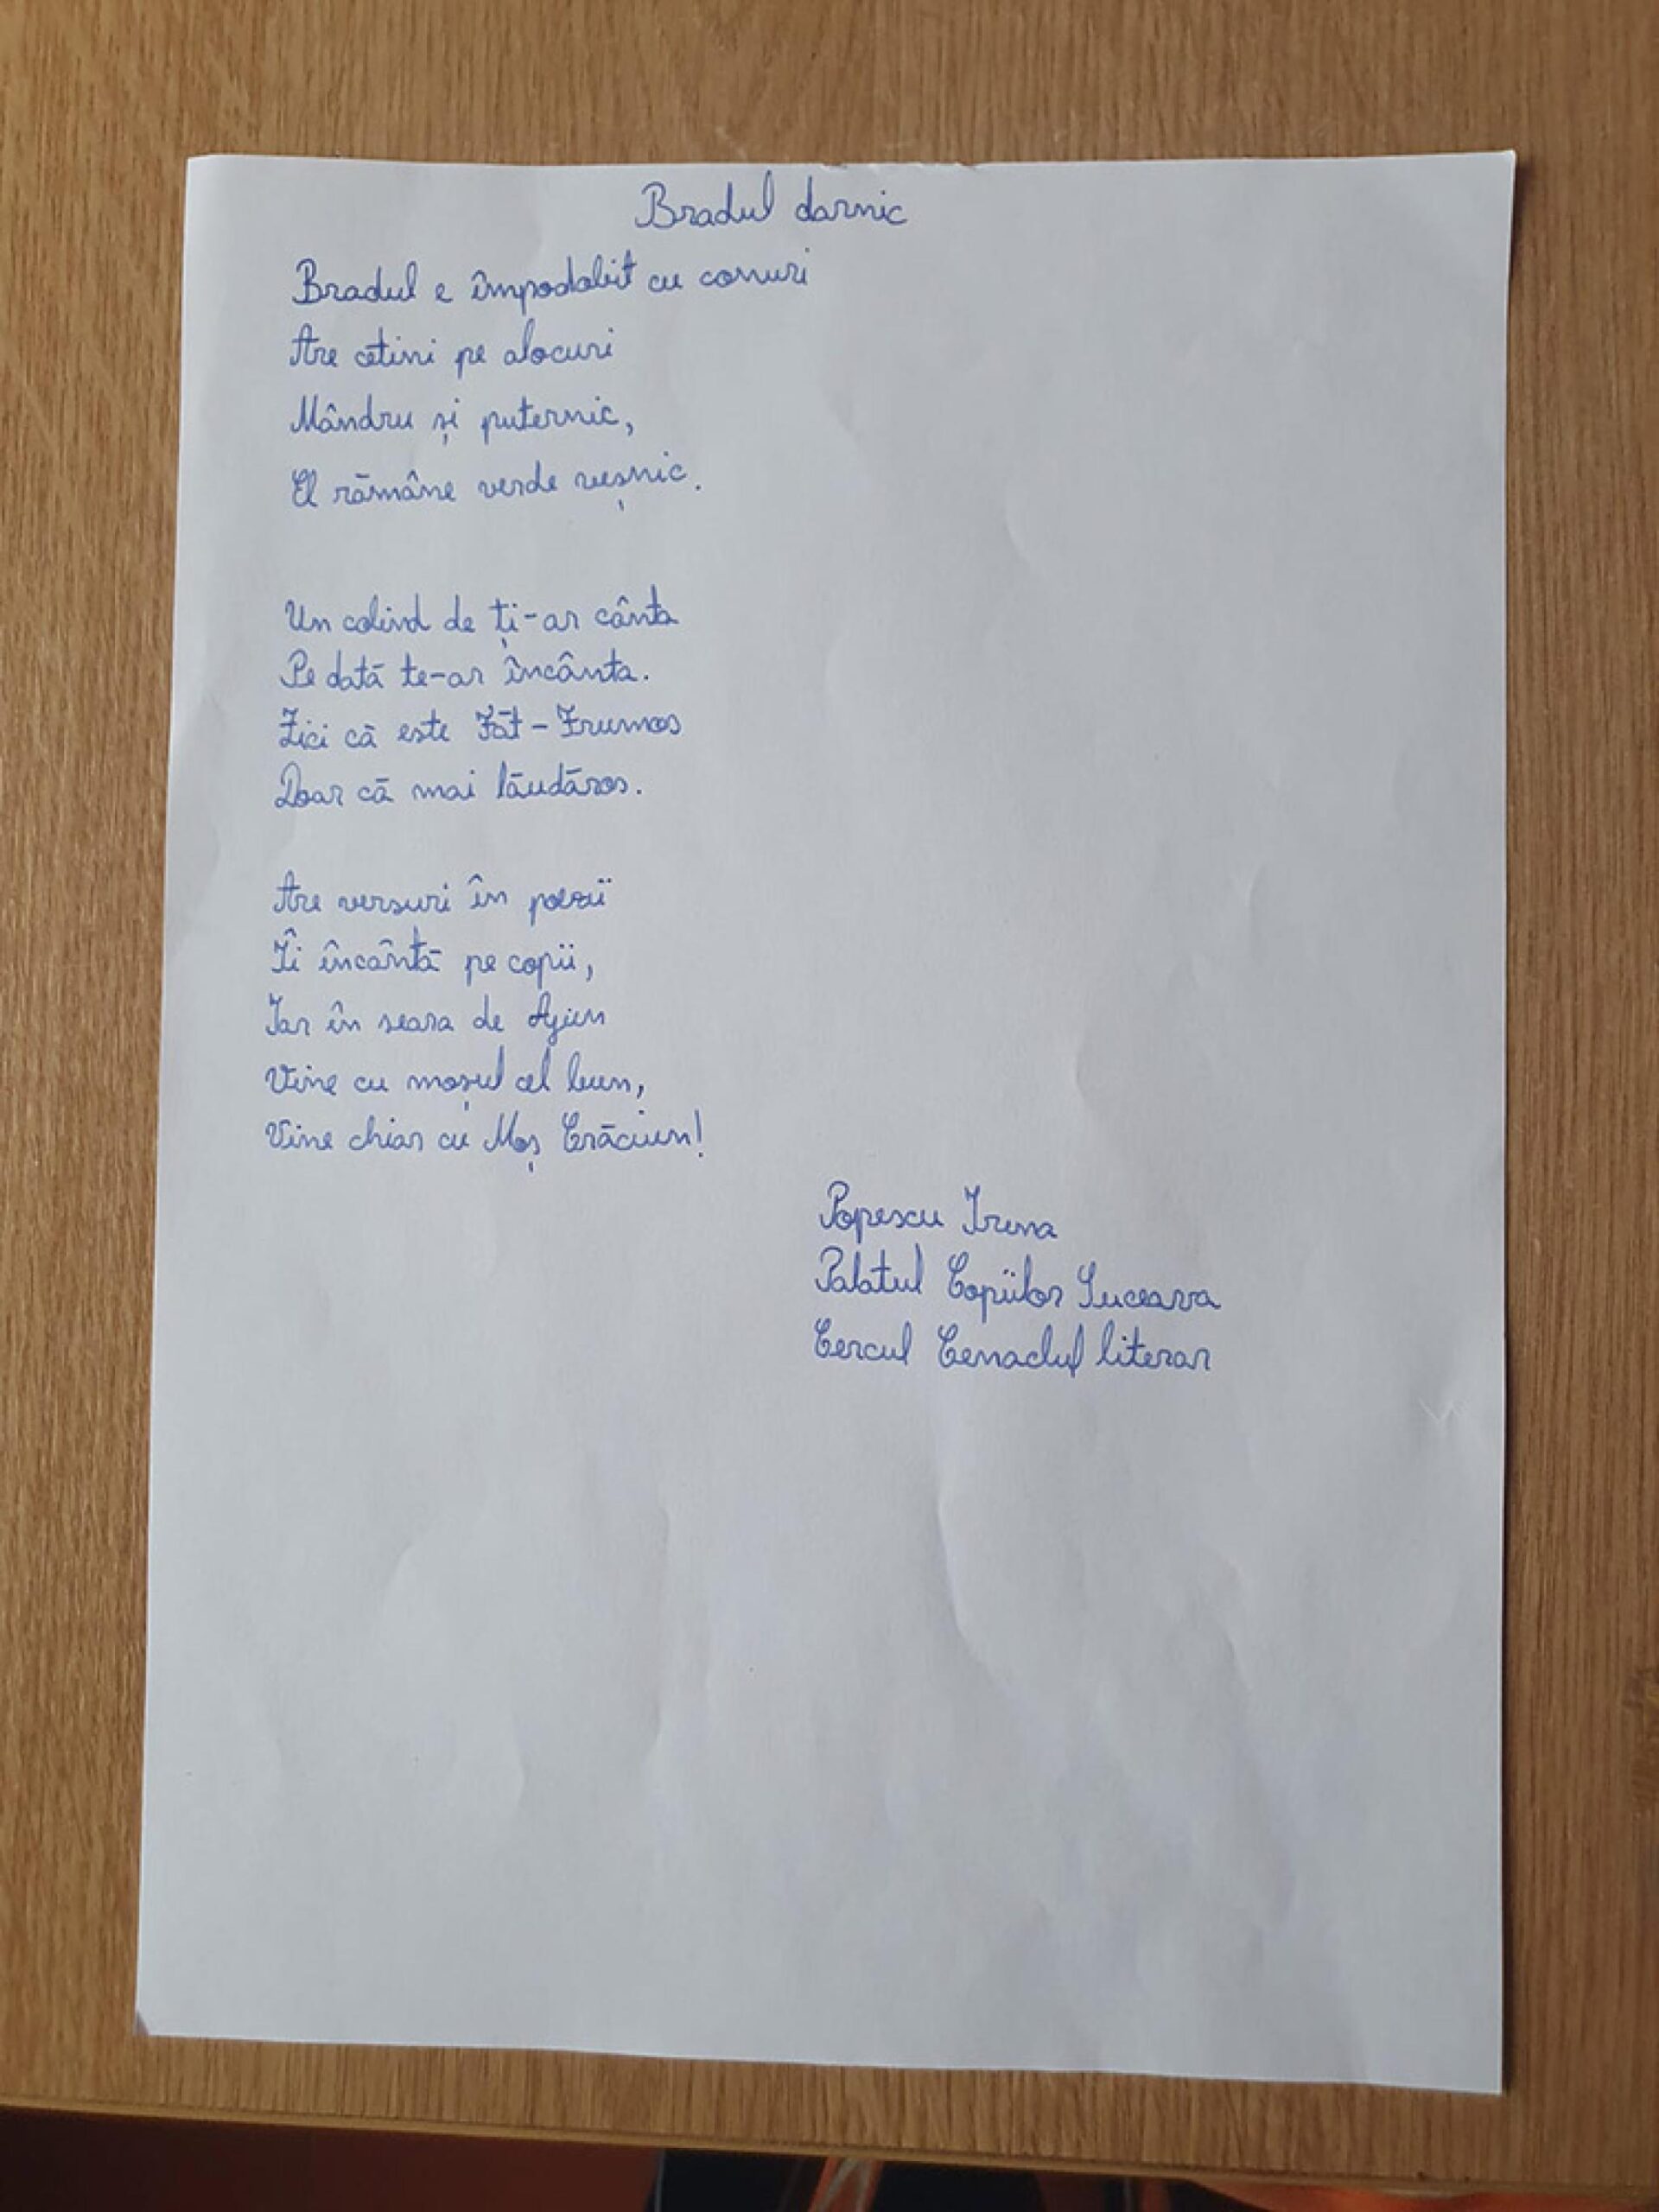 Bradul darnic
Bradul e împodobit cu conuri
Are cetini pe alocuri
Mândru și puternic,
El rămâne verde veșnic.
Un colind de ți-ar cânta
Pe dată te-ar încânta.
Zici că este Făt-Frumos
Doar că mai lăudăros.
Are versuri în poezii
Îi încântă pe copii,
Iar în seara de Ajun
Vine cu moșul cel bun,
Vine chiar cu Moș Crăciun!
Popescu Irena
Palatul Copiilor Suceava
Cercul Cenaclul literar